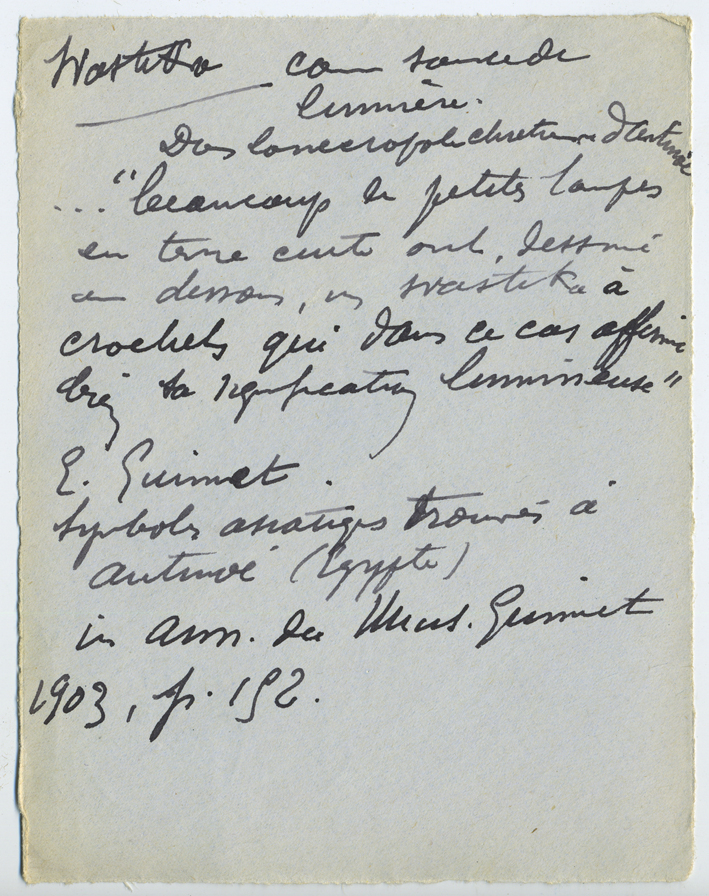 Swastika comme source de
lumière.
Dans la necropole chretienne d'Antinoé
... "beaucoup de petites lampes
en terre cuite ont, dessiné
au dessous, un swastika à
crochets qui dans ce cas affirme
bien sa signification lumineuse"
E. Guimet.
Symboles asiatiques trouvés à
Antinoé (Egypte)
in Ann. du Mus. Guimet
1903, p. 152.